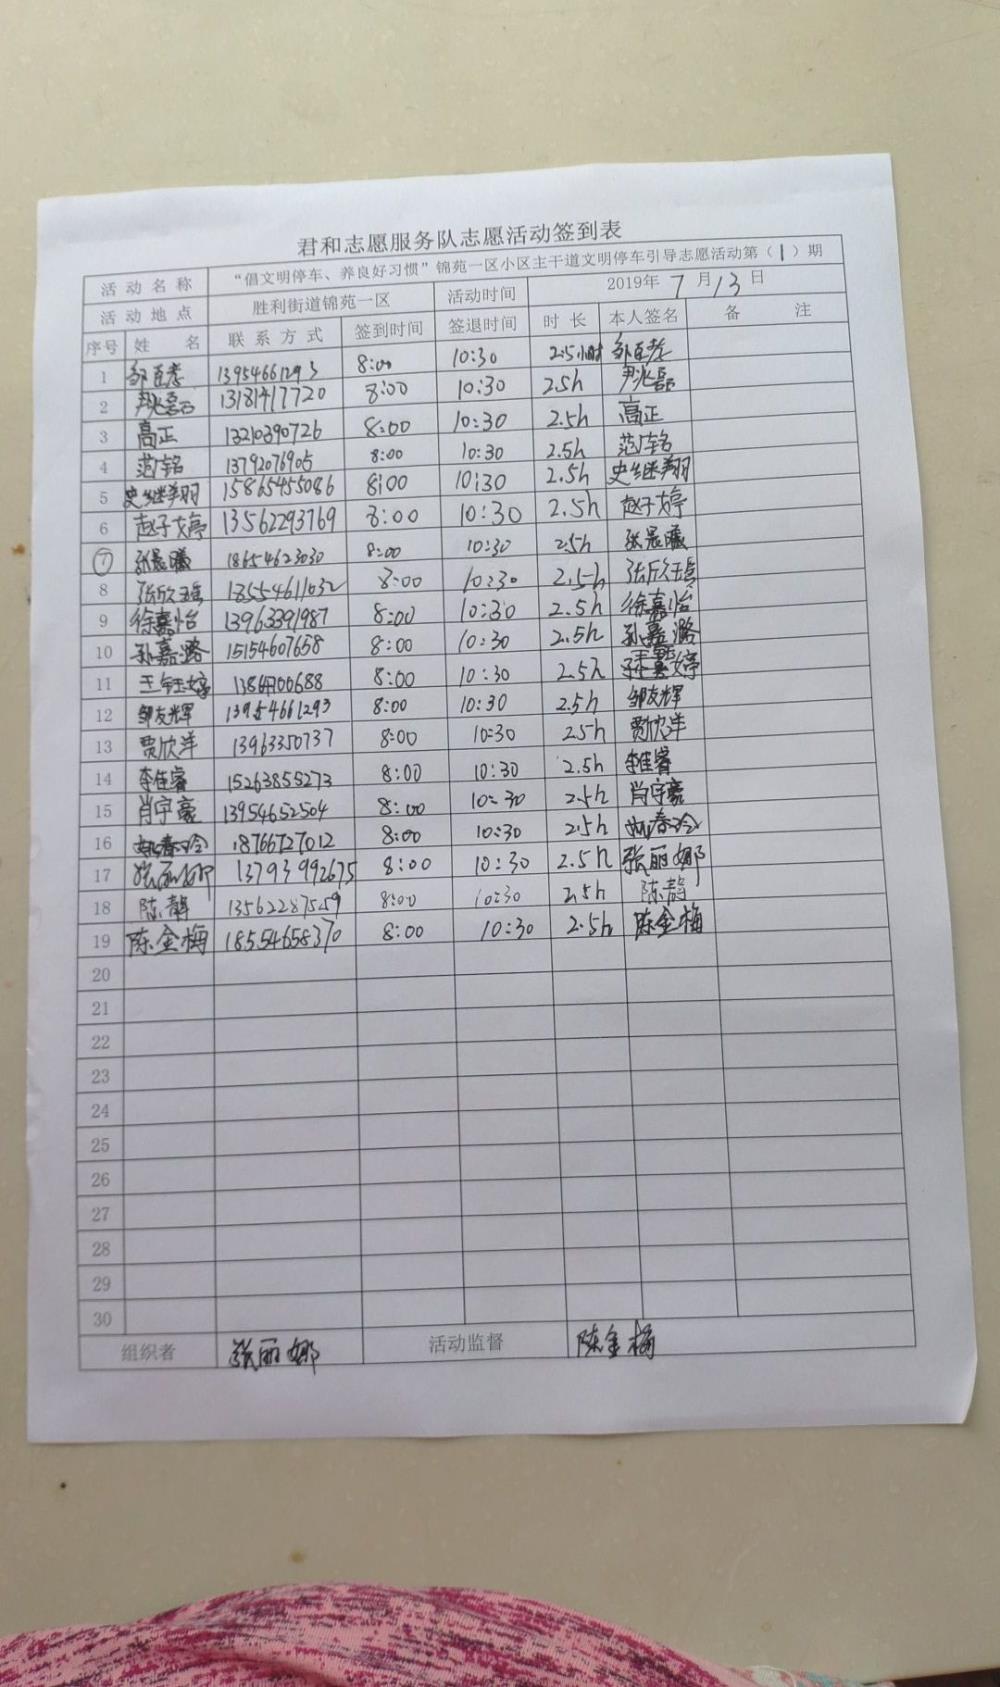 君和志愿服务队志愿活动签到表
活动名称 “倡文明停车、养良好习惯”锦苑一区小区主干道文明停车引导志愿活动第（1）期
活动地点 胜利街道锦苑一区 活动时间 2019年 7 月 13 日
序号 姓 名 联系方式 签到时间 签退时间 时长 本人签名 备 注
1 邹百孝 13954661293 8:00 10:30 2.5小时 邹百孝
2 尹兆磊 13181417720 8:00 10:30 2.5h 尹兆磊
3 高正 13210390726 8:00 10:30 2.5h 高正
4 13792076905 8:00 10:30 2.5h
5 史继翔 15865455086 8:00 10:30 2.5h 史继翔
6 赵子婷 13562293769 8:00 10:30 2.5h 赵子婷
7 张晨曦 18654623030 8:00 10:30 2.5h 张晨曦
8 13554611032 8:00 10:30 2.5h
9 徐嘉怡 13963391987 8:00 10:30 2.5h 徐嘉怡
10 孙嘉潞 15154607658 8:00 10:30 2.5h 孙嘉潞
11 王钰婷 8:00 10:30 2.5h
12 邹友辉 13954661293 8:00 10:30 2.5h 邹友辉
13 贾欣洋 13963350737 8:00 10:30 2.5h 贾欣洋
14 李佳睿 15263855273 8:00 10:30 2.5h 李佳睿
15 肖宇豪 13954652504 8:00 10:30 2.5h 肖宇豪
16 姚春玲 18766727012 8:00 10:30 2.5h 姚春玲
17 张丽娜 13793992675 8:00 10:30 2.5h 张丽娜
18 陈静 13562287559 8:00 10:30 2.5h 陈静
19 陈金梅 18554658370 8:00 10:30 2.5h 陈金梅
20
21
22
23
24
25
26
27
28
29
30
组织者 张丽娜 活动监督 陈金梅